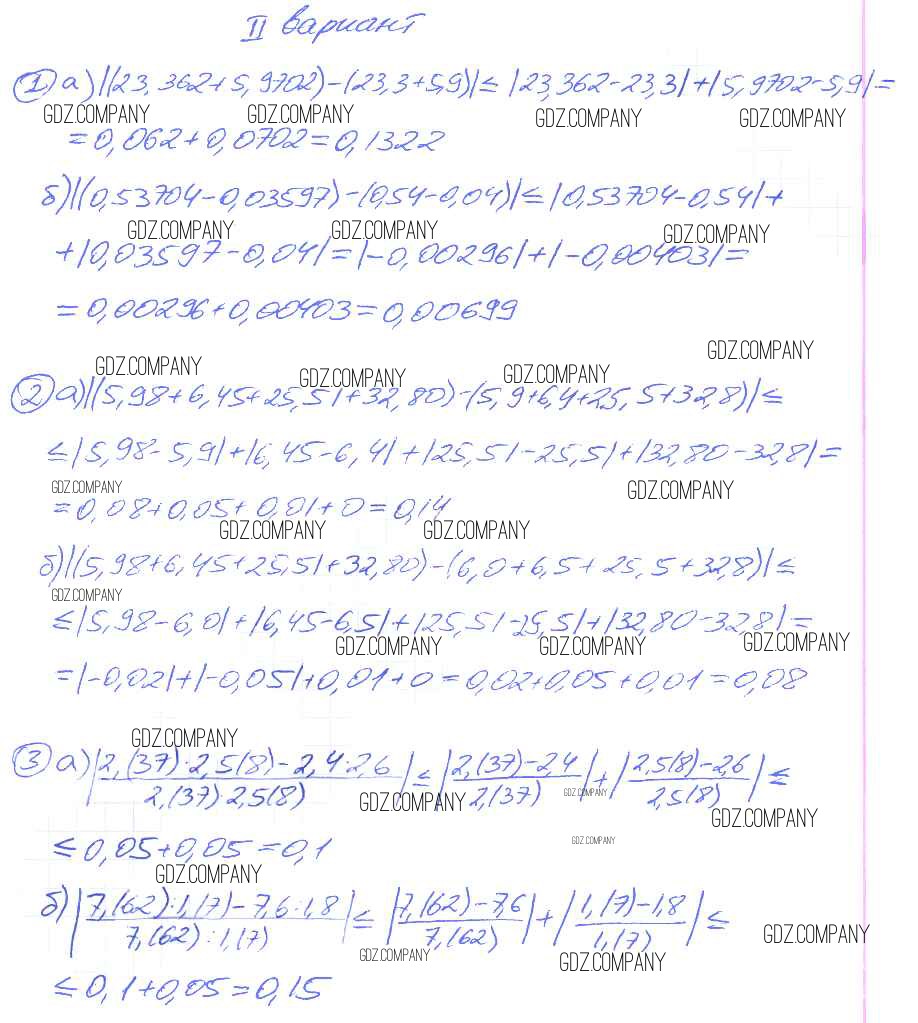 II вариант
① а) |(23,362+5,9702)-(23,3+5,9)| ≤ |23,362-23,3|+|5,9702-5,9|=
GDZ.COMPANY GDZ.COMPANY GDZ.COMPANY GDZ.COMPANY
=0,062+0,0702=0,1322
б) |(0,53704-0,03597)-(0,54-0,04)| ≤ |0,53704-0,54|+
GDZ.COMPANY GDZ.COMPANY GDZ.COMPANY
+|0,03597-0,04|=|-0,00296|+|-0,00403|=
=0,00296+0,00403=0,00699
GDZ.COMPANY GDZ.COMPANY GDZ.COMPANY GDZ.COMPANY
② а) |(5,98+6,45+25,51+32,80)-(5,9+6,4+25,5+32,8)| ≤
≤ |5,98-5,9|+|6,45-6,4|+|25,51-25,5|+|32,80-32,8|=
GDZ.COMPANY GDZ.COMPANY
=0,08+0,05+0,01+0=0,14
GDZ.COMPANY GDZ.COMPANY
б) |(5,98+6,45+25,51+32,80)-(6,0+6,5+25,5+32,8)| ≤
GDZ.COMPANY
≤ |5,98-6,0|+|6,45-6,5|+|25,51-25,5|+|32,80-32,8|=
GDZ.COMPANY GDZ.COMPANY GDZ.COMPANY
=|-0,02|+|-0,05|+0,01+0=0,02+0,05+0,01=0,08
GDZ.COMPANY
③ а) |2,(37)·2,5(8)-2,4·2,6 / 2,(37)·2,5(8)| ≤ |2,(37)-2,4 / 2,(37)|+|2,5(8)-2,6 / 2,5(8)| ≤
GDZ.COMPANY GDZ.COMPANY GDZ.COMPANY
≤ 0,05+0,05=0,1
GDZ.COMPANY GDZ.COMPANY
б) |7,(62):1,(7)-7,6:1,8 / 7,(62):1,(7)| ≤ |7,(62)-7,6 / 7,(62)|+|1,(7)-1,8 / 1,(7)| ≤
GDZ.COMPANY GDZ.COMPANY GDZ.COMPANY
≤ 0,1+0,05=0,15